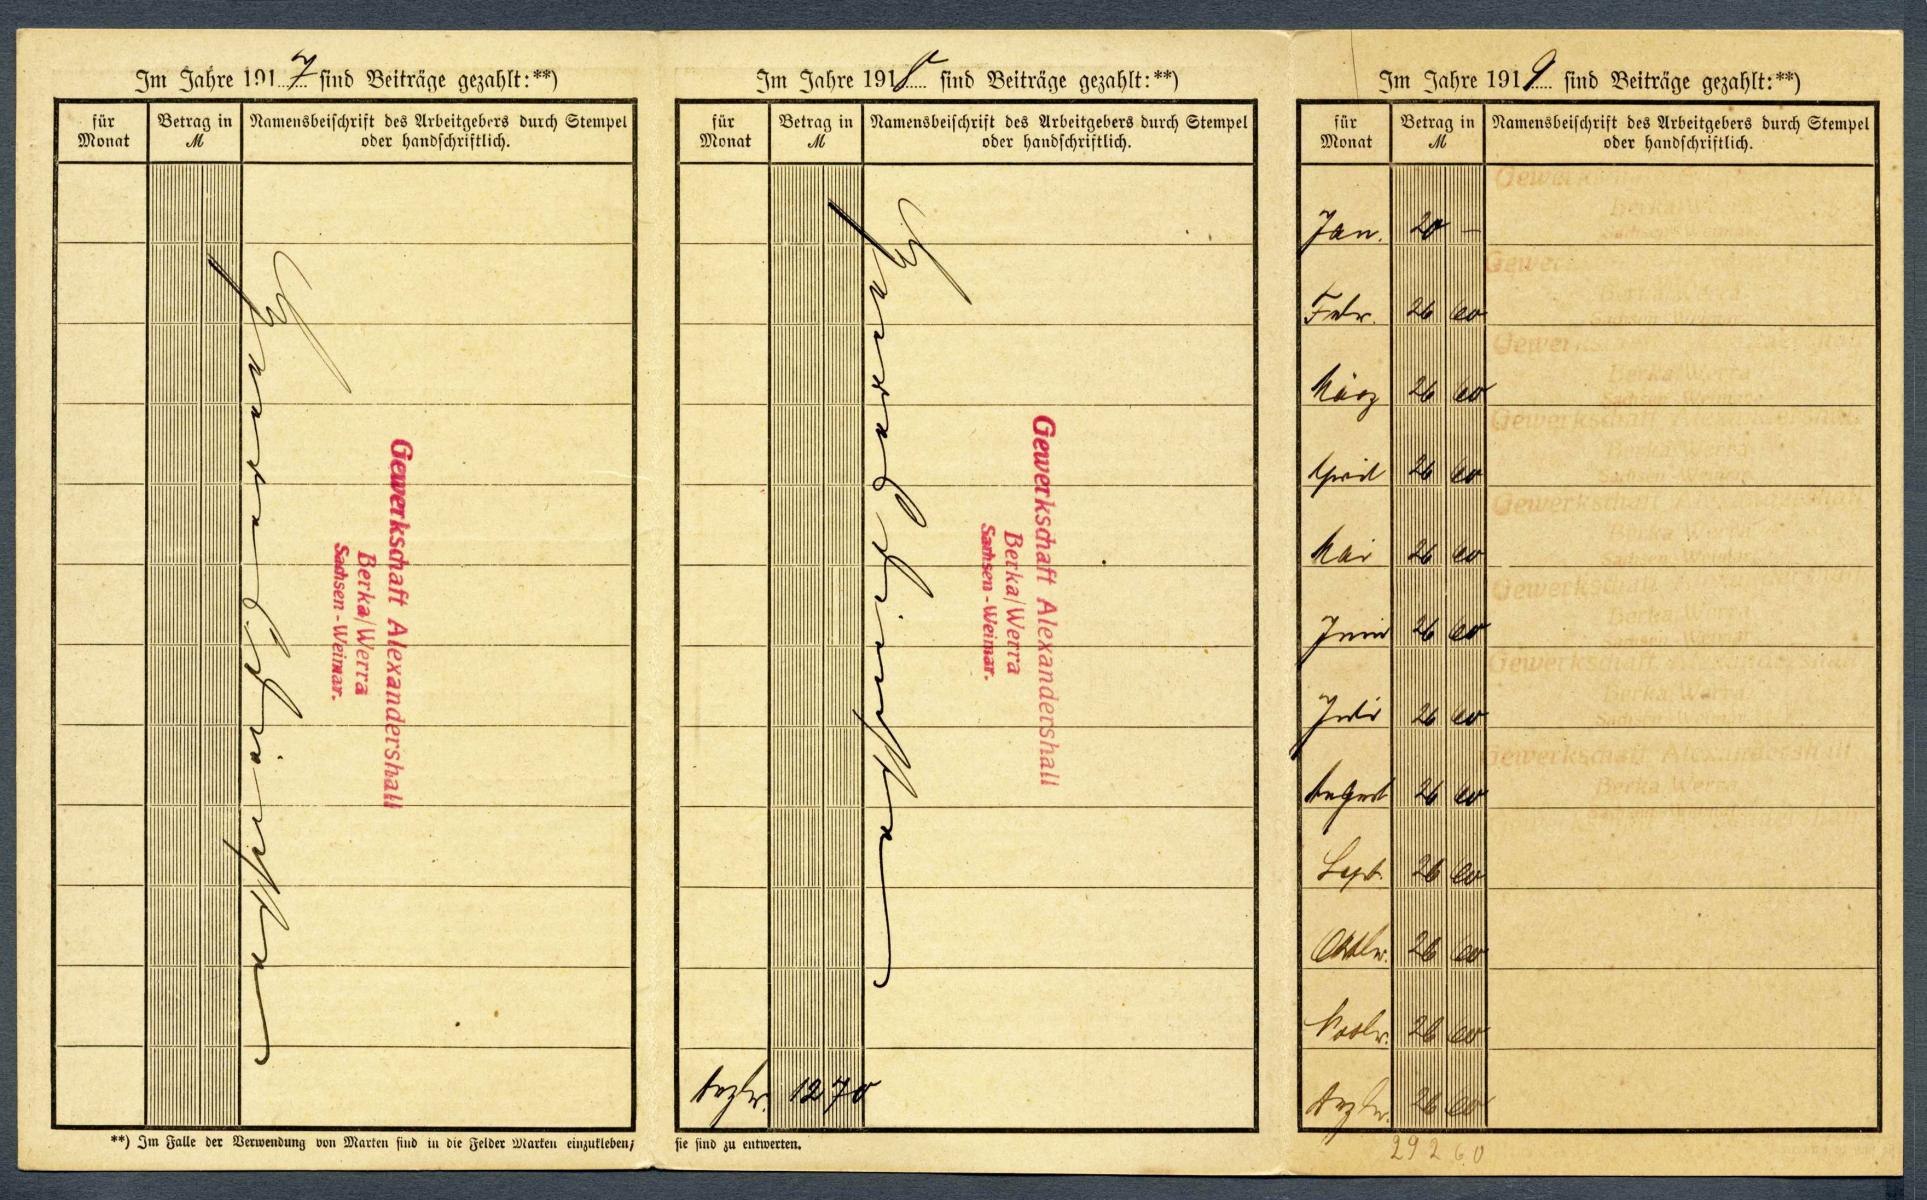 Im Jahre 1917 sind Beiträge gezahlt:**)
für Monat
Betrag in M
Namensbeischrift des Arbeitgebers durch Stempel
oder handschriftlich.
Gewerkschaft Alexandershall
Berka/Werra
Sachsen-Weimar.
**) Im Falle der Verwendung von Marken sind in die Felder Marken einzukleben;
Im Jahre 1918 sind Beiträge gezahlt:**)
für Monat
Betrag in M
Namensbeischrift des Arbeitgebers durch Stempel
oder handschriftlich.
Gewerkschaft Alexandershall
Berka/Werra
Sachsen-Weimar.
Dezbr. 12 70
sie sind zu entwerten.
Im Jahre 1919 sind Beiträge gezahlt:**)
für Monat
Betrag in M
Namensbeischrift des Arbeitgebers durch Stempel
oder handschriftlich.
Jan. 20 –
Gewerkschaft
Berka/Werra
Sachsen-Weimar
Febr. 26 60
Gewerkschaft
Berka/Werra
Sachsen-Weimar
März 26 60
Gewerkschaft Alexandershall
Berka/Werra
Sachsen-Weimar
April 26 60
Gewerkschaft Alexandershall
Berka/Werra
Sachsen-Weimar
Mai 26 60
Gewerkschaft Alexandershall
Berka/Werra
Sachsen-Weimar
Juni 26 60
Gewerkschaft Alexandershall
Berka/Werra
Sachsen-Weimar
Juli 26 60
Gewerkschaft Alexandershall
Berka/Werra
Sachsen-Weimar
August 26 60
Gewerkschaft Alexandershall
Berka/Werra
Sachsen-Weimar
Sept. 26 60
Oktbr. 26 60
Novbr. 26 60
Dezbr. 26 60
292 60